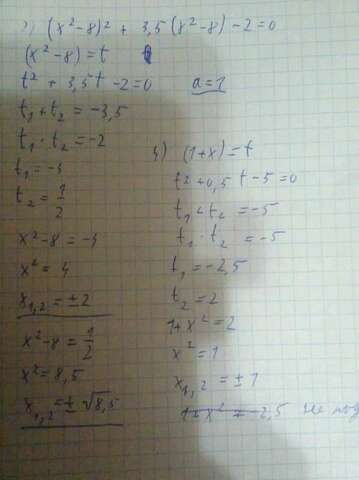 2) (x²-8)² + 3,5 (x²-8) -2=0
(x²-8)=t
t² + 3,5t -2=0
a=1
t₁+t₂ = -3,5
t₁·t₂ = -2
t₁=-4
t₂=1/2
x²-8=-4
x²=4
x₁,₂=±2
x²-8=1/2
x²=8,5
x₁,₂=±√8,5
(1+x)=t
t²+0,5t-5=0
t₁+t₂=-5
t₁·t₂=-5
t₁=-2,5
t₂=2
1+x²=2
x²=1
x₁,₂=±1
1+x²=-2,5 не